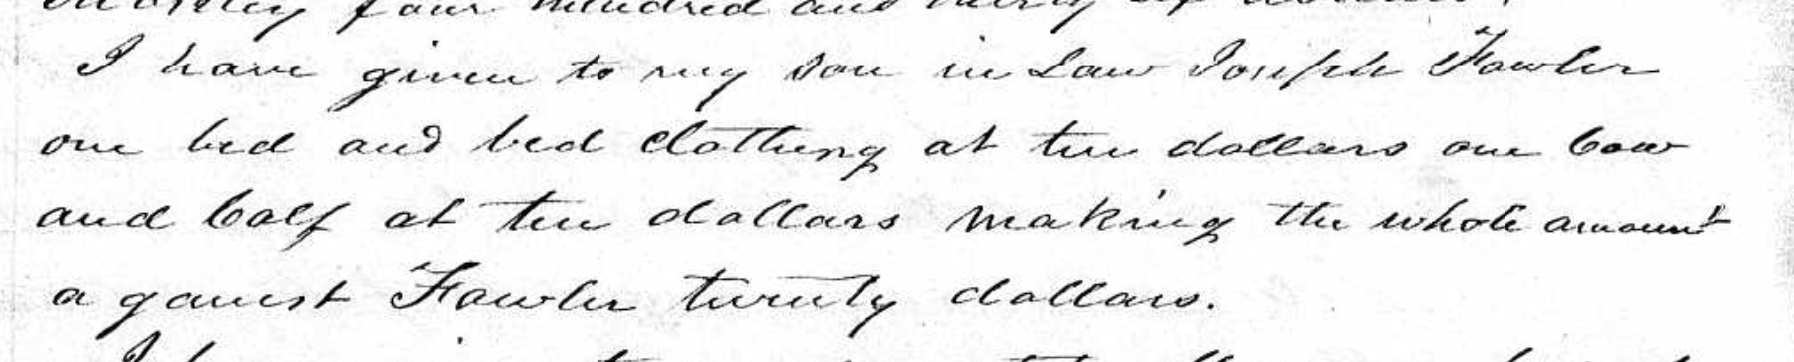 four hundred and thirty six dollars.
I have given to my son in Law Joseph Fowler
one bed and bed clothing at ten dollars one Cow
and Calf at ten dollars making the whole amount
a ganest Fowler twenty dollars.